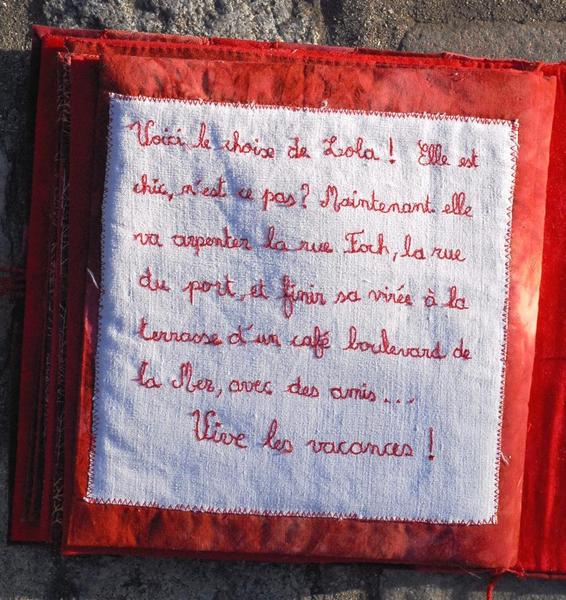 Voici le choix de Lola ! Elle est
chic, n'est ce pas ? Maintenant elle
va arpenter la rue Foch, la rue
du port, et finir sa virée à la
terrasse d'un café boulevard de
la Mer, avec des amis...
Vive les vacances !